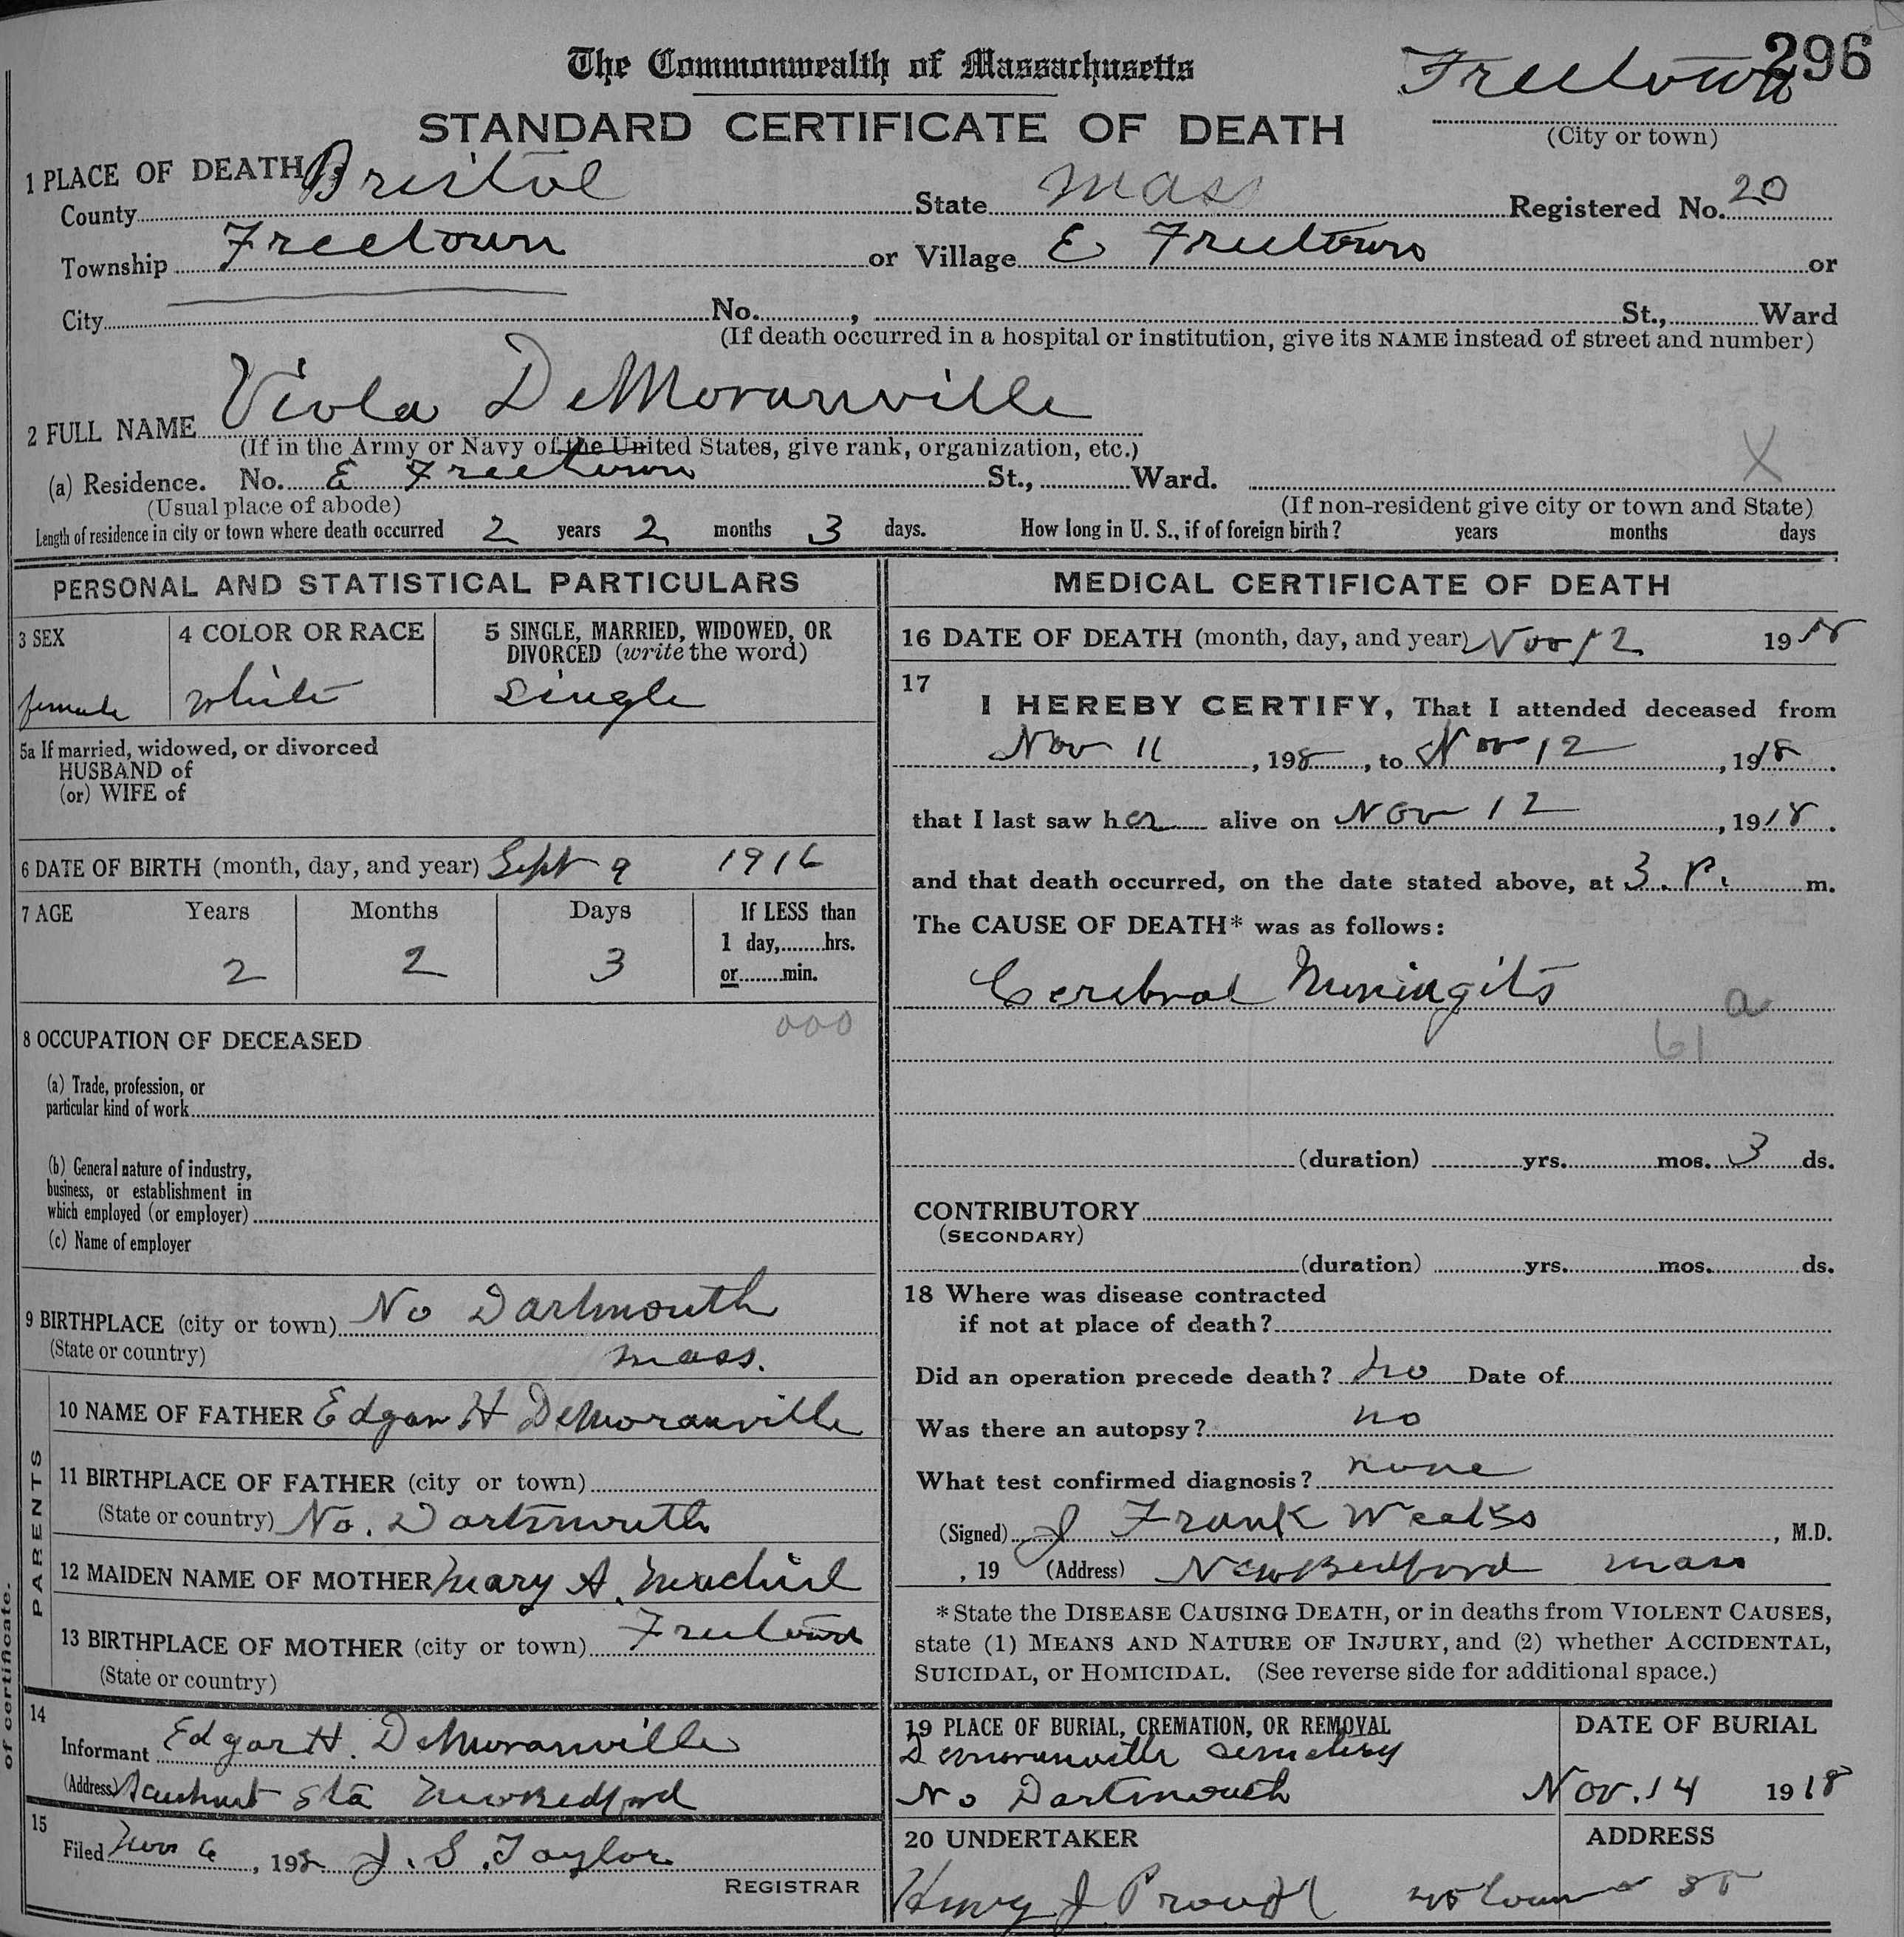 296
The Commonwealth of Massachusetts
Freetown
STANDARD CERTIFICATE OF DEATH
(City or town)
1 PLACE OF DEATH
County Bristol State Mass Registered No. 20
Township Freetown or Village E Freetown or
City No. , St., Ward
(If death occurred in a hospital or institution, give its NAME instead of street and number)
2 FULL NAME Viola DeMoranville
(If in the Army or Navy of the United States, give rank, organization, etc.)
X
(a) Residence. No. E Freetown St., Ward.
(Usual place of abode) (If non-resident give city or town and State)
Length of residence in city or town where death occurred 2 years 2 months 3 days. How long in U. S., if of foreign birth? years months days
PERSONAL AND STATISTICAL PARTICULARS
3 SEX 4 COLOR OR RACE 5 SINGLE, MARRIED, WIDOWED, OR
DIVORCED (write the word)
female white Single
5a If married, widowed, or divorced
HUSBAND of
(or) WIFE of
6 DATE OF BIRTH (month, day, and year) Sept 9 1916
7 AGE Years Months Days If LESS than
1 day, hrs.
2 2 3 or min.
000
8 OCCUPATION OF DECEASED
(a) Trade, profession, or
particular kind of work
(b) General nature of industry,
business, or establishment in
which employed (or employer)
(c) Name of employer
9 BIRTHPLACE (city or town) No Dartmouth
(State or country) Mass.
PARENTS
10 NAME OF FATHER Edgar H DeMoranville
11 BIRTHPLACE OF FATHER (city or town)
(State or country) No. Dartmouth
12 MAIDEN NAME OF MOTHER Mary A.
13 BIRTHPLACE OF MOTHER (city or town) Freetown
(State or country)
14
Informant Edgar H. DeMoranville
(Address) Sta New Bedford
15
Filed Nov , 19 J. S. Taylor
REGISTRAR
of certificate.
MEDICAL CERTIFICATE OF DEATH
16 DATE OF DEATH (month, day, and year) Nov 12 1918
17
I HEREBY CERTIFY, That I attended deceased from
Nov 11, 198, to Nov 12, 1918.
that I last saw her alive on Nov 12, 1918.
and that death occurred, on the date stated above, at 3. P. m.
The CAUSE OF DEATH* was as follows:
Cerebral Meningits
a
61
(duration) yrs. mos. 3 ds.
CONTRIBUTORY
(SECONDARY)
(duration) yrs. mos. ds.
18 Where was disease contracted
if not at place of death?
Did an operation precede death? no Date of
Was there an autopsy? no
What test confirmed diagnosis? none
(Signed) J Frank Weeks, M.D.
, 19 (Address) New Bedford Mass
* State the DISEASE CAUSING DEATH, or in deaths from VIOLENT CAUSES,
state (1) MEANS AND NATURE OF INJURY, and (2) whether ACCIDENTAL,
SUICIDAL, or HOMICIDAL. (See reverse side for additional space.)
19 PLACE OF BURIAL, CREMATION, OR REMOVAL DATE OF BURIAL
Demoranville Cemetery
No Dartmouth Nov. 14 1918
20 UNDERTAKER ADDRESS
Henry J